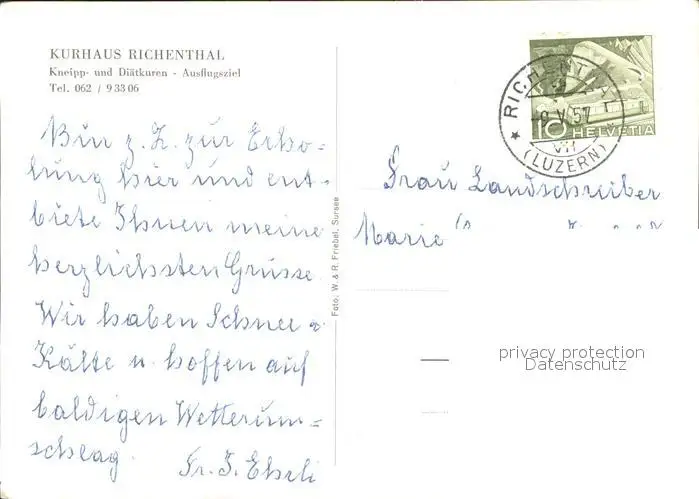 KURHAUS RICHENTHAL
Kneipp- und Diätkuren - Ausflugsziel
Tel. 062 / 9 33 06
Bin z. Z. zur Erho-
lung hier und ent-
biete Ihnen meine
herzlichsten Grüsse.
Wir haben Schnee &
Kälte u. hoffen auf
baldigen Wetterum=
schlag.
Fr. J. Ehrli
Foto: W. & R. Friebel, Sursee
RICHENTHAL
V. 57
VII
(LUZERN)
10 HELVETIA
Frau Landschreiber
Marie
privacy protection
Datenschutz